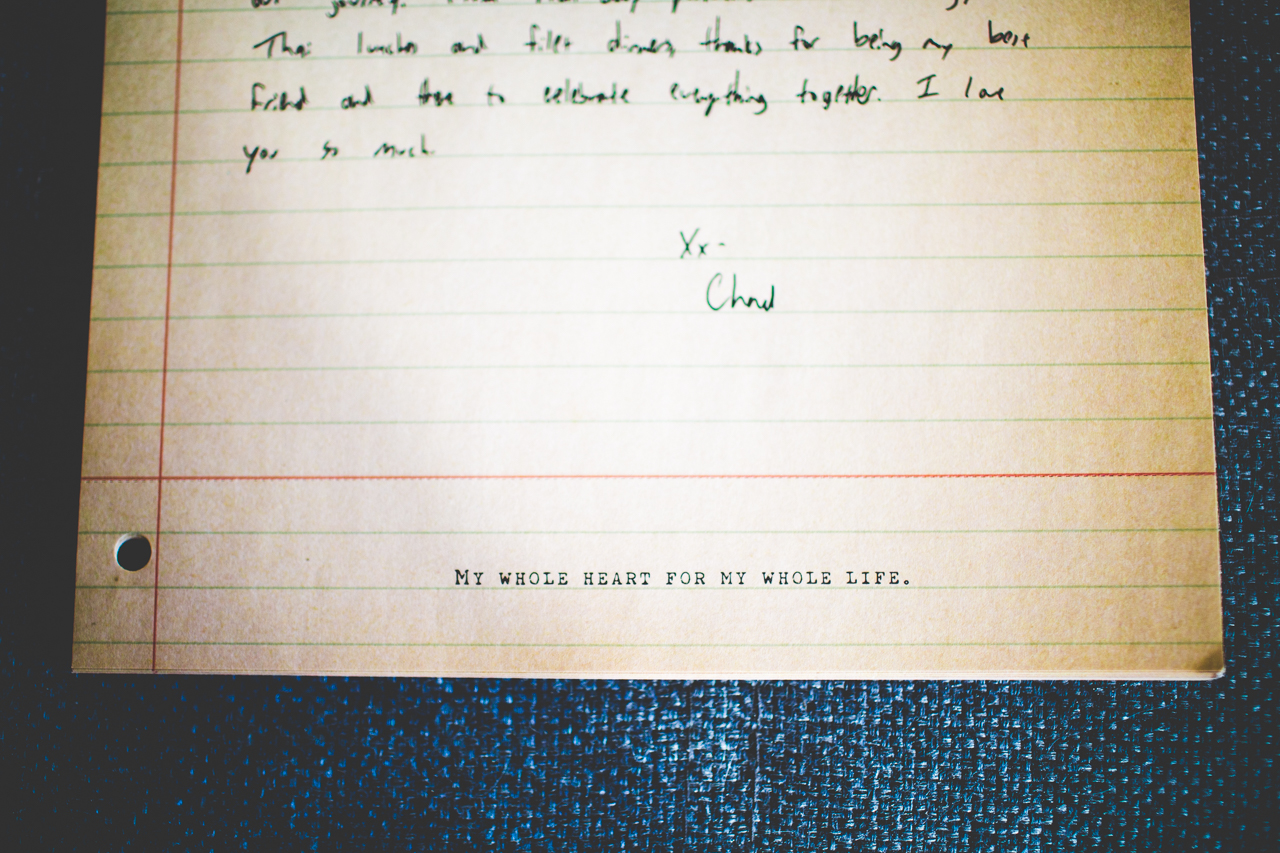 our journey.
Thai lunches and fillet dinners, thanks for being my best
friend and there to celebrate everything together. I love
you so much.
Xx-
Chad
MY WHOLE HEART FOR MY WHOLE LIFE.